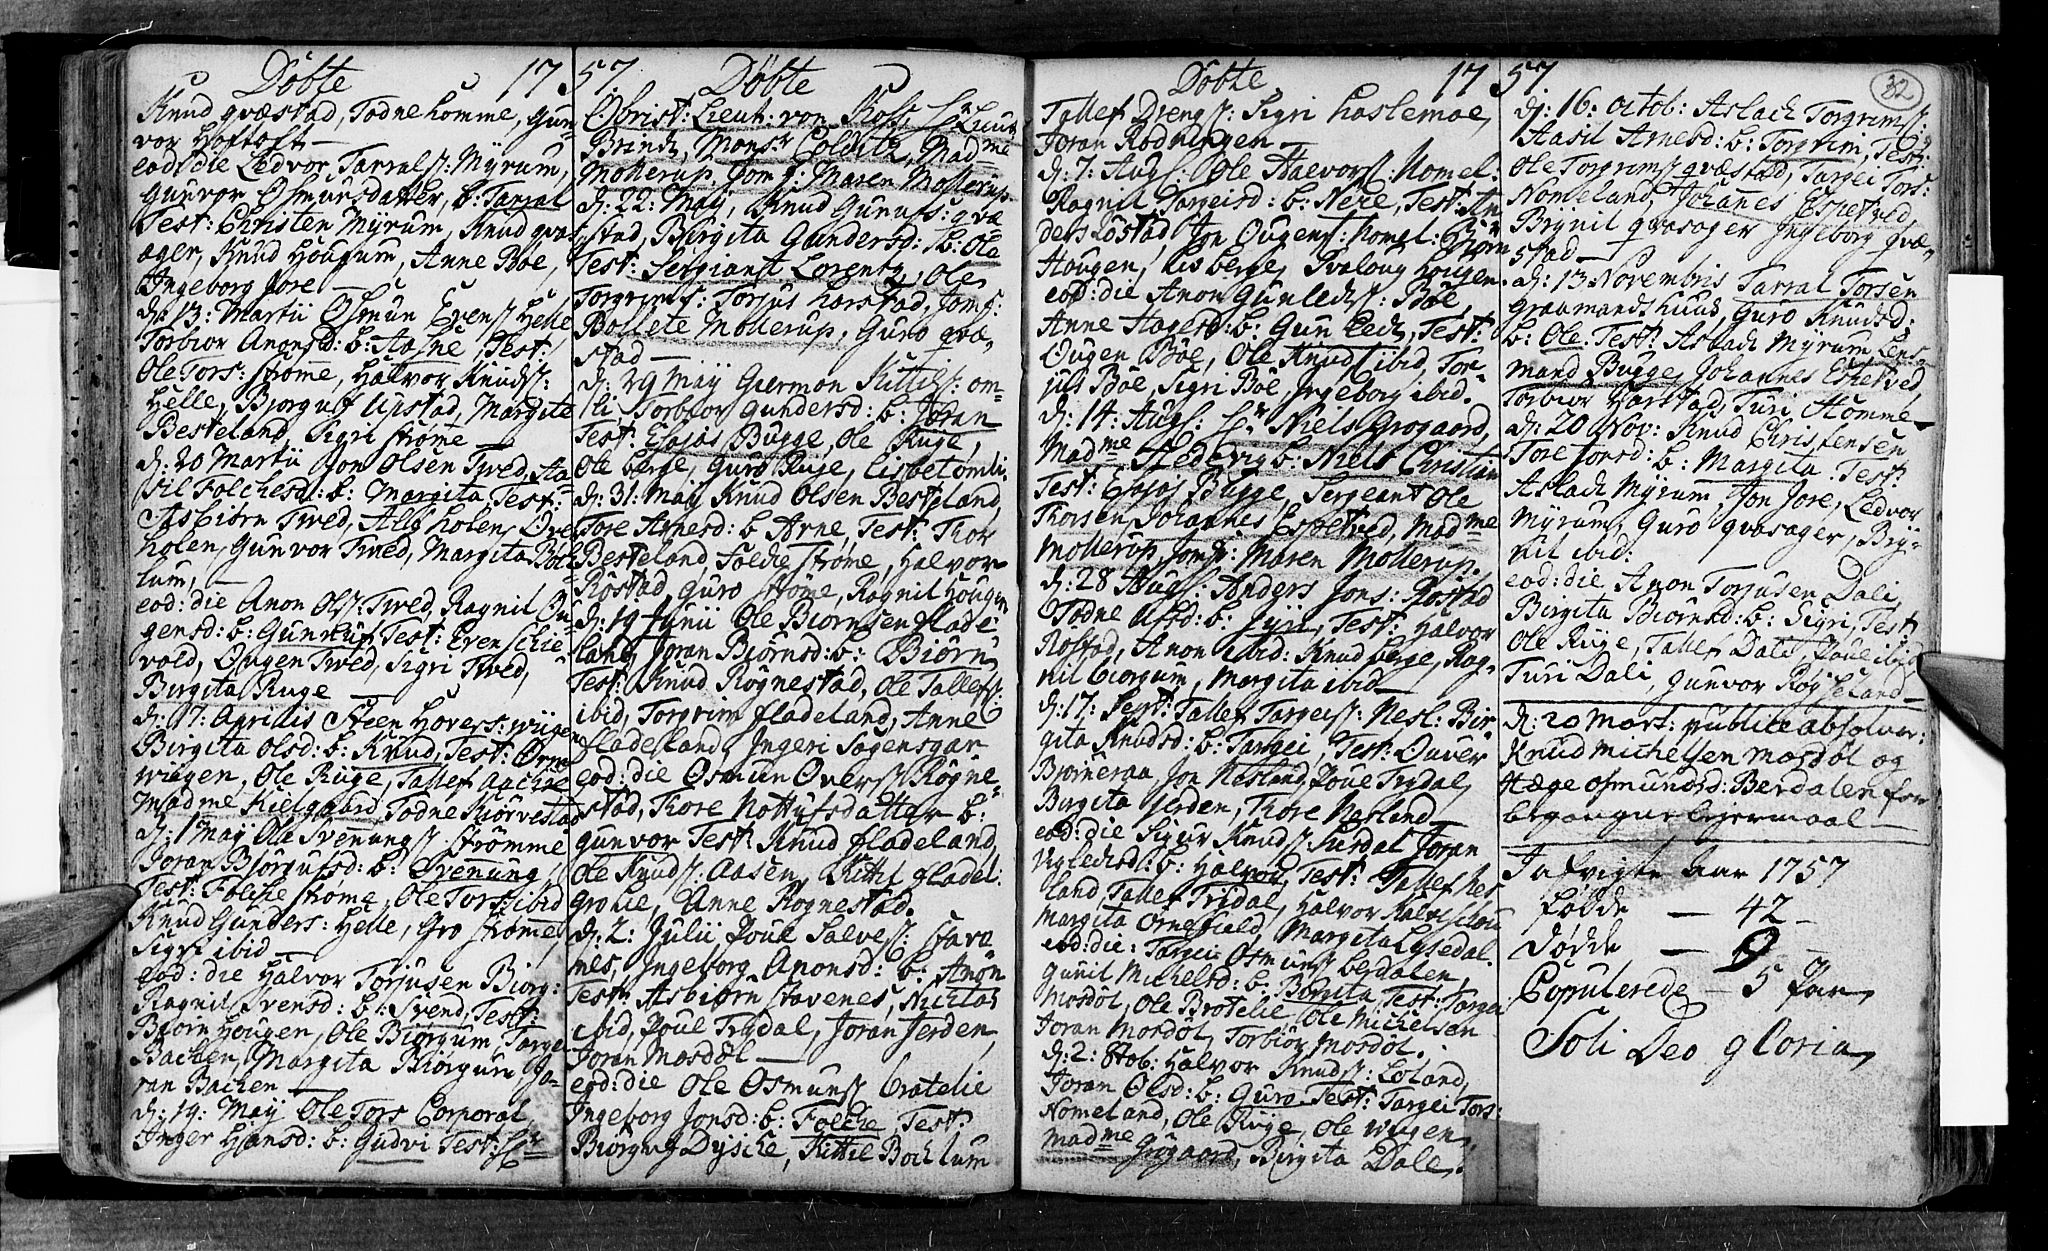 Döbte 17
Knud qvæstad, Todne homme, Gun-
vor Hoftoft —
eod: die Ledvor Tarrals: Myrum,
Gunvor Osmunsdatter, b: Tarral
Test: Christen Myrum, Knud qvas-
ager, Knud Hougum, Anne Boe,
Ingeborg Jore —
d: 13: Martii Osmun Evens: Helle
Torbior Anonsd: b: Aasne, Test:
Ole Tors: strøme, Halvor Knuds:
Helle, Bjorguf Upstad, Margite
Besteland, Sigri strøme —
d: 20 Martii Jon Olsen Tved, Aa-
sil Folchesd: b: Margita Test:
Asbiørn Tved, Alf holen, Ove
holen, Gunvor Tved, Margita Boch-
lum, —
eod: die Anon Ols: Tved, Ragnil Ou-
gensd: b: Gunluf Test: Even Schie-
vold, Ougen Tved, Sigri Tved,
Birgita Ruge —
d: 17: Aprilis Steen Hovers: wiigen
Birgita Olsd: b: Knud, Test: Orm
wiigen, Ole Ruge, Tallef Aachre
Madme Kielgaard, Todne Kiörvestad
d: 1 May Ole Svenungs: Strömme
Joran Bjorgufsd: b: Svenung,
Test: Folche strøme, Ole Tors: ibid
Knud Gunders: Helle, Gro strøme
Sigri ibid —
eod: die Halvor Torjusen Biorg:
Ragnil Svensd: b: Svend, Test:
Bjørn Hougen, Ole Biørgum, Targe
Bachen, Margita Biörgum Jo-
ran Bachen —
d: 19: Maÿ Ole Tors Corporal
Inger Hansd: b: Gudvi Test: Hr
57. Döbte
Obrist: Lieut: von Koss, Hr Lieut:
Brandt, Monsr Colditz, Madme
Mollerup, Jomf: Maren Mollerup
d: 22: May, Knud Gunufs: qvæ
stad, Birgita Gundersd: b: Ole
Test: Sergiant Lorentz, Ole
Torgrims: Torjus harstad, Jomf:
Bollete Mollerup, Guro qvæ-
stad —
d: 29 Maÿ Giermon Kittils: om-
li Torbior Gundersd: b: Joran
Test: Esaias Bugge, Ole Ruge,
Ole berge, Guro Ruge, Lisbet ömli
d: 31: Maÿ Knud Olsen Besteland,
Tore Arnesd: b Arne, Test: Thor
Besteland, Folche strøme, Halvor
Röstad, Guro strøme, Ragnil Hougen
d: 19 Junii Ole Biørnsen flade
land, Joran Biørnsd: b: Biörn
Test: Knud Rögnestad, Ole Tallefs:
ibid, Torgrim fladeland, Anne
fladeland, Ingeri Sogensgar
eod: die Osmun Overs: Rögne-
stad, Thore Nottufsdatter b:
Gunvor Test: Knud fladeland,
Ole Knuds: Aasen, Kittil fladel:
Gro lie, Anne Rognestad.
d: 2: Julii Poul Salves: stave
nes, Ingeborg Anonsd: b: Anön
Test: Asbiørn stavenes, Nichlas
ibid, Poul Trydal, Joran Jerden,
Joran Mosdöl —
eod: die Ole Osmuns: Bratelie
Ingeborg Jonsd: b: Folche, Test:
Biørguf Dysche, Kittil Bochlum
Döbte 17
Tallef Drengs: Sigri Haslemoe,
Joran Rödningen —
d: 7: Augs: Ole Halvors: Nomel:
Ragnil Targeisd: b: Nere, Test: An
ders Röstad, Jon Ougens: Nomel: Biörn
Hougen, Lis berge, Rvaloug Hougen.
eod: die Anon Gunlechs: Böe,
Anne Aagesd: b: Gunlech, Test:
Ougen Böe, Ole Knuds: ibid, Tor-
jus Böe, Sigri Böe, Ingeborg ibid.
d: 14: Augs: Hr Niels Grogaard,
Madme Hedevig b: Niels Christian
Test: Esaias Bugge, Sergeant Ole
Thorsen, Johannes Espetved, Madme
Mollerup, Jomf: Maren Mollerup.
d: 28 Augs: Anders Jons: Rostad
Todne Ulfsd: b: Jyri, Test: Halvor
Rostad, Anon ibid: Knud berge, Rag-
nil biorgum, Margita ibid —
d: 17: Sept: Tallef Targeis: Nesl: Bir
gita Knudsd: b: Targei, Test: Ouver
Bjorneraa, Jon Nesland, Poul Trydal,
Birgita Jerden, Thore Nesland
eod: die Sigur Knuds: Susdal Joran
Uglechsd: b: Halvor, Test: Tallef Nes
land, Tallef Tridal, Halvor Kalvschou
Margita Ornefield, Margita Lysedal.
eod: die: Targei Osmuns: berdalen,
Gunil Michelsd: b: Borgita, Test: Targe
Mosdöl, Ole Brotelie Ole Michelsen
Joran Mosdöl, Torbior Mosdöl.
d: 2: 8tob: Halvor Knuds: Loland,
Joran Olsd: b: Guro Test: Targei Tors:
Nomeland, Ole Ruge, Ole wiigen,
Madme Grögaard, Birgita Dale.
57
32
d: 16: octob: Aslach Torgrims:
Aasil Arnesd: b: Torgrim, Test:
Ole Torgrims qvæstad, Targei Tors:
Nomeland, Johanes Espetved,
Brynil qvasager Ingeborg qvæ-
stad —
d: 13 Novembris Tarral Torsen
Graamands huud, Guro Knudsd:
b: Ole. Test: Aslach Myrum, Lens-
mand Bugge, Johannes Espetved
Torbior Harstad, Turi Homme —
d: 20 Nov: Knud Christensen
Tore Jonsd: b: Margita. Test:
Aslach Myrum, Jon Jore, Ledvor
Myrum, Guro qvasager, Bry-
nil ibid:
eod: die Anon Torjusen Dali
Birgita Biørnsd: b: Sigri, Test:
Ole Ruge, Tallef Dali, Poul ibid
Turi Dali, Gunvor Röyseland —
d: 20 Mart: publice absolver:
Knud Michelsen Mosdöl og
Hæge Osmundsd: Berdalen for
begangne leiermaal —
I afvigte Aar 1757
fødde — 42 —
Dødde — 9 —
Copulerede — 5 Par,
Soli Deo gloria,